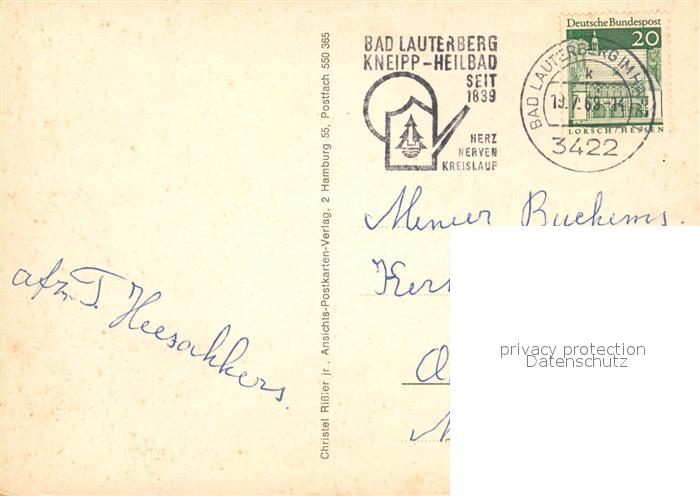 BAD LAUTERBERG
KNEIPP-HEILBAD
SEIT
1839
HERZ
NERVEN
KREISLAUF
Deutsche Bundespost
20
LORSCH/HESSEN
BAD LAUTERBERG IM
k
19.7.68
3422
Meneer Buckems.
afz. T. Heesakkers.
Christel Rißler jr., Ansichts-Postkarten-Verlag, 2 Hamburg 55, Postfach 550 365
privacy protection
Datenschutz